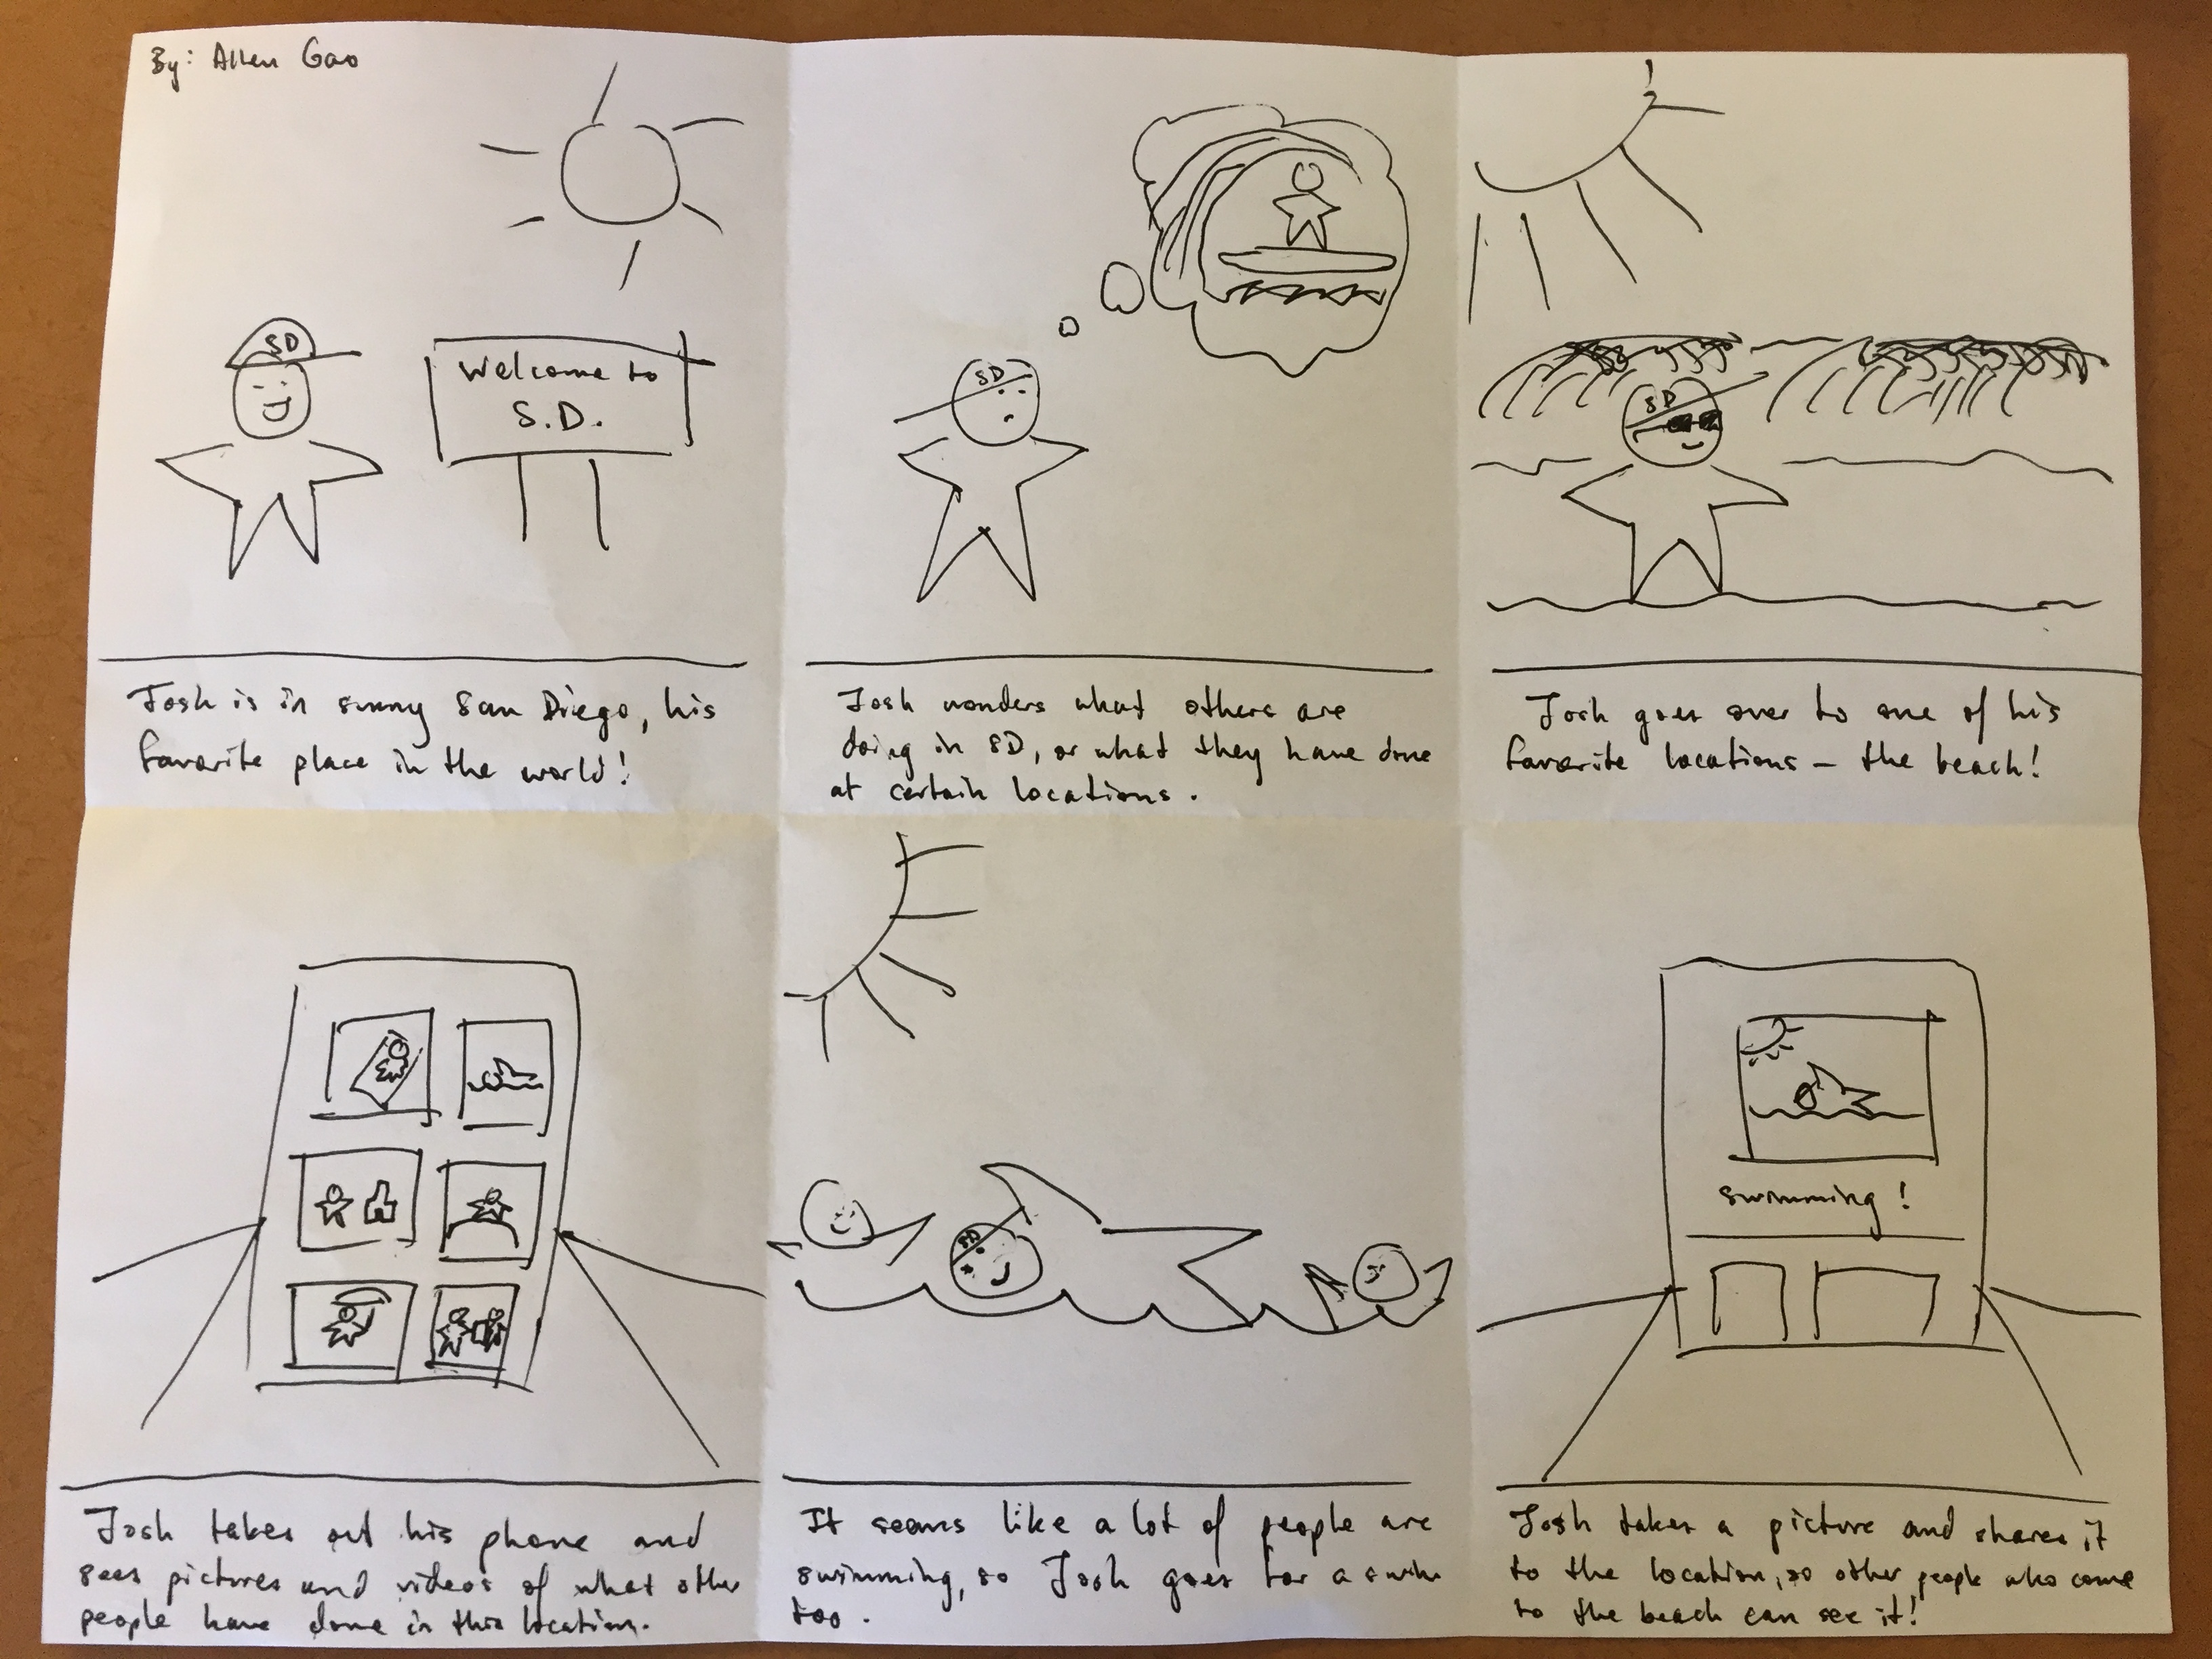 By: Allen Gao
SD
Welcome to
S.D.
Josh is in sunny San Diego, his
favorite place in the world!
SD
Josh wonders what others are
doing in SD, or what they have done
at certain locations.
SD
Josh goes over to one of his
favorite locations – the beach!
Josh takes out his phone and
sees pictures and videos of what other
people have done in this location.
SD
It seems like a lot of people are
swimming, so Josh goes for a swim
too.
swimming!
Josh takes a picture and shares it
to the location, so other people who come
to the beach can see it!